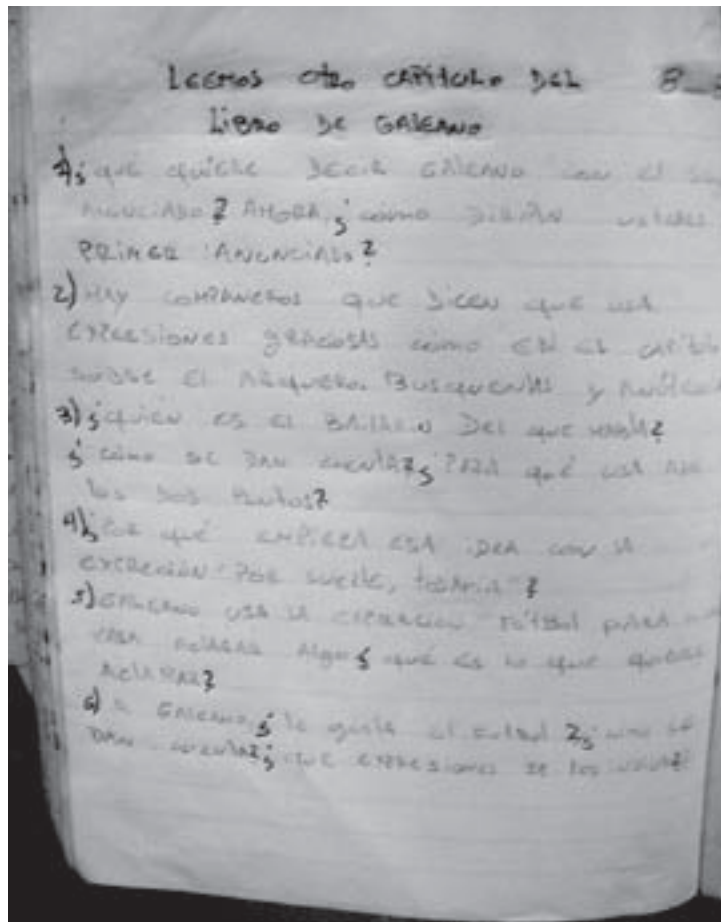 LEEMOS OTRO CAPÍTULO DEL 8_
LIBRO DE GALEANO
1)¿QUÉ QUIERE DECIR GALEANO CON EL
ANUNCIADO? AHORA, ¿CÓMO DIRÍAN USTEDES
PRIMER ANUNCIADO?
2) HAY COMPAÑEROS QUE DICEN QUE USA
EXPRESIONES GRACIOSAS COMO EN EL CAPÍTULO
SOBRE EL ARQUERO. BUSQUENLAS Y
3) ¿QUIÉN ES EL BAILARIN DEL QUE HABLA?
¿CÓMO SE DAN CUENTA? ¿PARA QUÉ USA
LOS DOS PUNTOS?
4) ¿POR QUÉ EMPIEZA ESA IDEA CON LA
"POR SUERTE, TODAVIA"?
5) GALEANO USA LA FÚTBOL PARA
PARA ACLARAR ALGO ¿QUÉ ES LO QUE QUIERE
ACLARAR?
6) A GALEANO, ¿LE GUSTA EL FUTBOL? ¿CÓMO SE
DAN CUENTA? ¿QUE EXPRESIONES SE LOS